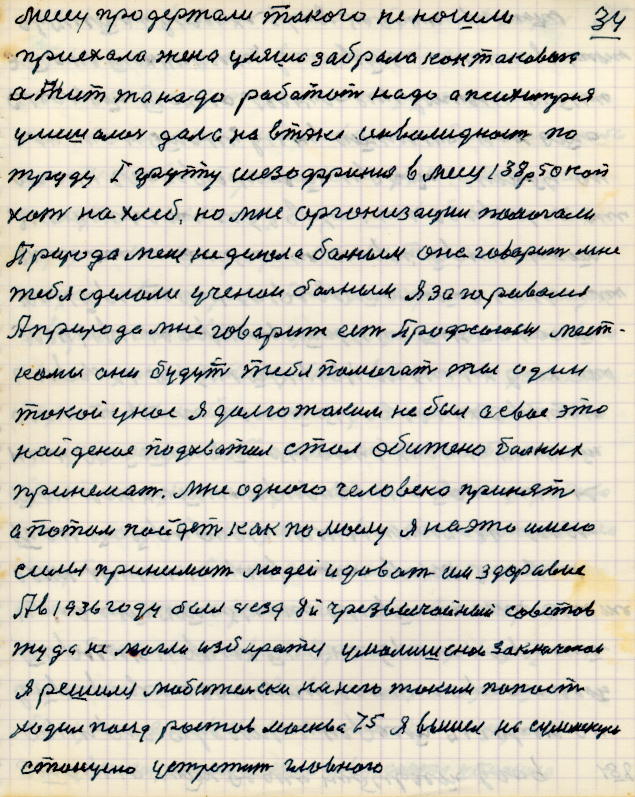 34
месу продержали такого не ношли
приехала жена уляша забрала как таковова
а жит та надо работат надо а психиатрия
дала на втэке инвалидност по
труду I групу шезофриния в месц 138р 50 коп
хот на хлеб, но мне организации помогали
Природа мени неделола болным она говарит мне
тебя сделоли ученои болным я загаривался
А природа мне говарит ест Профсоюзы мест-
комы они будут тебя помогат ты один
токой у нас я долго таким не был а свое это
найденое подхватил стал обижено болных
принемат. мне одного человека принят
а потом пойдет как по маслу я на это имею
силы принимат людей и доват им здоравие
А в 1936 году был сезд 8й чрезвычайный советов
туда не могли избирати умолишеной законченои
я решил любительски на него таким попаст
ходил поезд ростов москва 75 я вышел на
станцию устретит главного